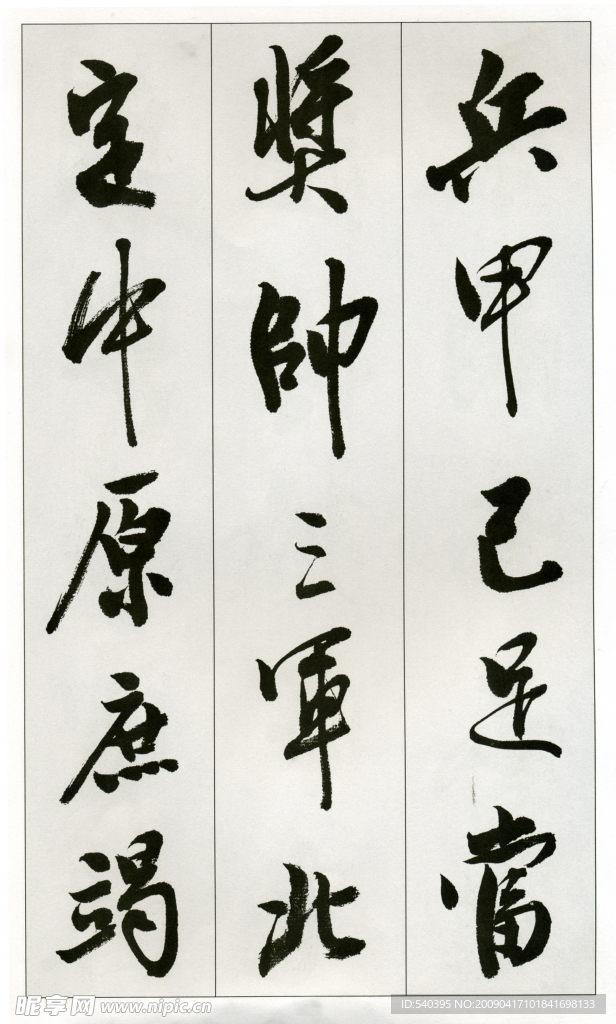 兵甲已足當
獎帥三軍北
定中原庶竭
昵享网 www.nipic.cn
ID:540395 NO:20090417101841698133